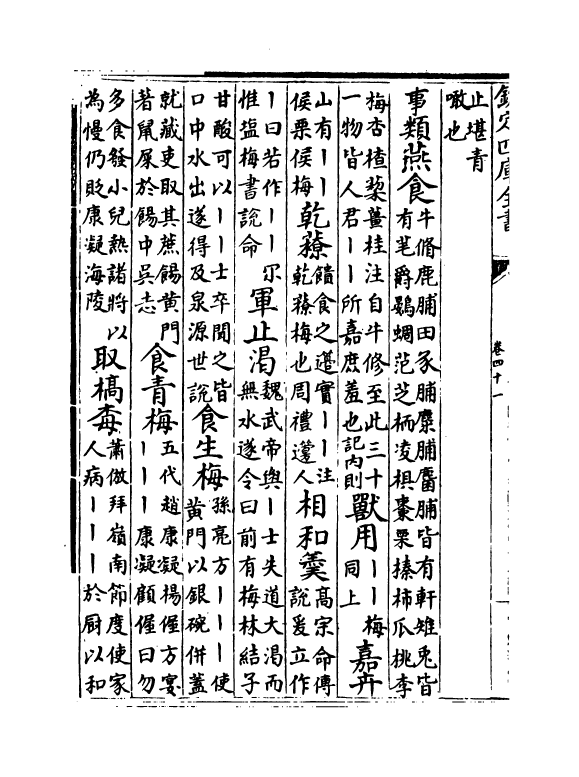 欽定四庫全書 卷四十一
止堪青噉也
事類燕食牛脩鹿脯田豕脯麋脯麕脯皆有軒雉兎皆有芼爵鷃蜩范芝栭凌椇棗栗榛柿瓜桃李
梅杏楂棃薑桂注自牛修至此三十一物皆人君丨丨所嘉庶羞也記内則獸用丨丨梅同上嘉卉
山有丨丨侯栗侯梅乾䕩饋食之籩實丨丨注乾䕩梅也周禮籩人相和羹高宗命傅說爰立作
丨曰若作丨丨尔惟塩梅書說命軍止渴魏武帝與丨士失道大渴而無水遂令曰前有梅林結子
甘酸可以丨丨士卒聞之皆口中水出遂得及泉源世說食生梅孫亮方丨丨丨使黄門以銀碗併蓋
就藏吏取其蔗餳黄門著鼠屎於餳中吳志食青梅五代趙康凝楊偓方宴丨丨丨康凝顧偓曰勿
多食發小兒熱諸將以為慢仍貶康凝海陵取槁毒蕭倣拜嶺南節度使家人病丨丨丨於厨以和